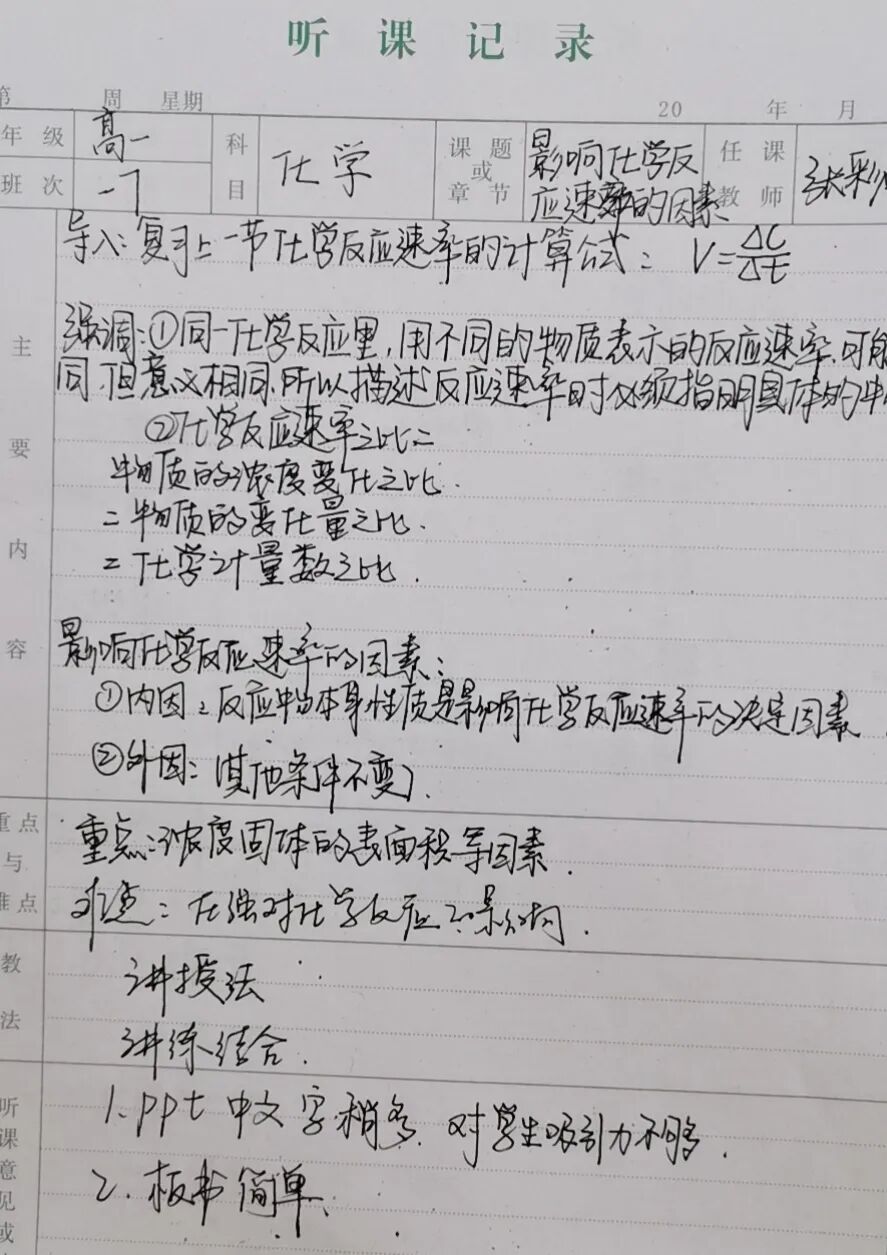 听课记录
第 周 星期 20 年 月
年级 高一 科目 化学 课题或章节 影响化学反应速率的因素 任课教师 张彩
班次 一7
主要内容
导入:复习上一节化学反应速率的计算公式: V=ΔC/Δt
强调:①同一化学反应里,用不同的物质表示的反应速率,可能
同,但意义相同.所以描述反应速率时必须指明具体的
②化学反应速率之比=
物质的浓度变化之比.
=物质的变化量之比.
=化学计量数之比.
影响化学反应速率的因素:
①内因:反应物本身性质是影响化学反应速率的决定因素
②外因:(其他条件不变).
重点与难点
重点:浓度固体的表面积等因素.
难点:压强对化学反应的影响.
教法
讲授法
讲练结合.
听课意见或
1.ppt中文字稍多,对学生吸引力不够.
2.板书简单.